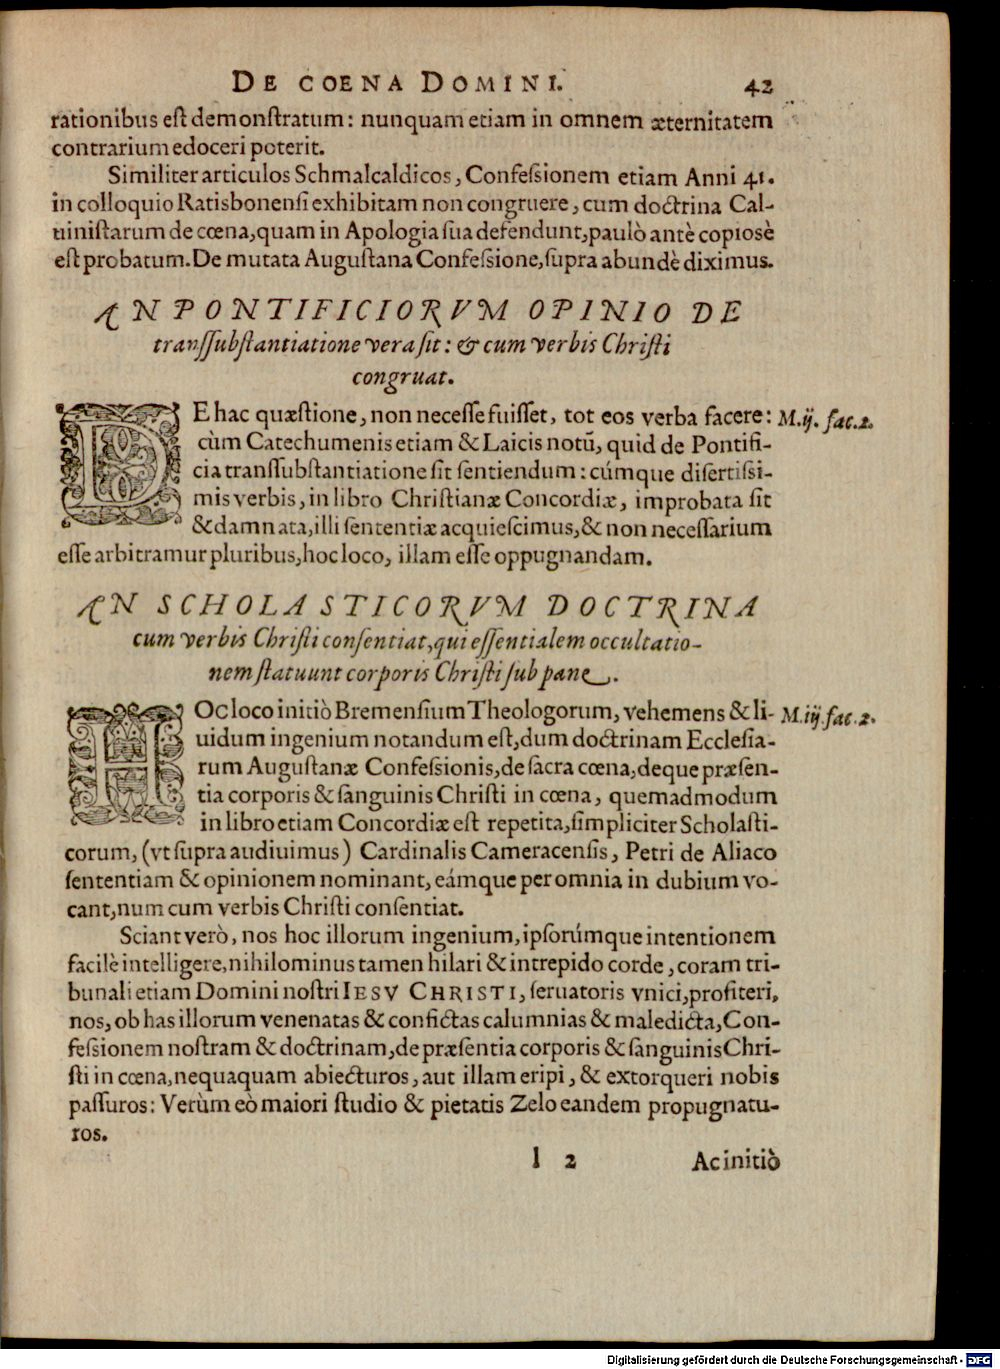 DE COENA DOMINI. 42
rationibus est demonstratum: nunquam etiam in omnem æternitatem
contrarium edoceri poterit.
Similiter articulos Schmalcaldicos, Confessionem etiam Anni 41.
in colloquio Ratisbonensi exhibitam non congruere, cum doctrina Cal-
uinistarum de cœna, quam in Apologia sua defendunt, paulò antè copiosè
est probatum. De mutata Augustana Confessione, supra abundè diximus.
AN PONTIFICIORVM OPINIO DE
transsubstantiatione vera sit: & cum verbis Christi
congruat.
DE hac quæstione, non necesse fuisset, tot eos verba facere: M.ij. fac.2.
cùm Catechumenis etiam & Laicis notũ, quid de Pontifi-
cia transsubstantiatione sit sentiendum: cúmque disertissi-
mis verbis, in libro Christianæ Concordiæ, improbata sit
& damnata, illi sententiæ acquiescimus, & non necessarium
esse arbitramur pluribus, hoc loco, illam esse oppugnandam.
AN SCHOLASTICORVM DOCTRINA
cum verbis Christi consentiat, qui essentialem occultatio-
nem statuunt corporis Christi sub pane.
HOc loco initiò Bremensium Theologorum, vehemens & li- M.iij.fac.2.
uidum ingenium notandum est, dum doctrinam Ecclesia-
rum Augustanæ Confessionis, de sacra cœna, deque præsen-
tia corporis & sanguinis Christi in cœna, quemadmodum
in libro etiam Concordiæ est repetita, simpliciter Scholasti-
corum, (vt supra audiuimus) Cardinalis Cameracensis, Petri de Aliaco
sententiam & opinionem nominant, eámque per omnia in dubium vo-
cant, num cum verbis Christi consentiat.
Sciant verò, nos hoc illorum ingenium, ipsorúmque intentionem
facilè intelligere, nihilominus tamen hilari & intrepido corde, coram tri-
bunali etiam Domini nostri IESV CHRISTI, seruatoris vnici, profiteri,
nos, ob has illorum venenatas & confictas calumnias & maledicta, Con-
fessionem nostram & doctrinam, de præsentia corporis & sanguinis Chri-
sti in cœna, nequaquam abiecturos, aut illam eripi, & extorqueri nobis
passuros: Verùm eò maiori studio & pietatis Zelo eandem propugnatu-
ros.
l 2 Ac initiò
Digitalisierung gefördert durch die Deutsche Forschungsgemeinschaft - DFG